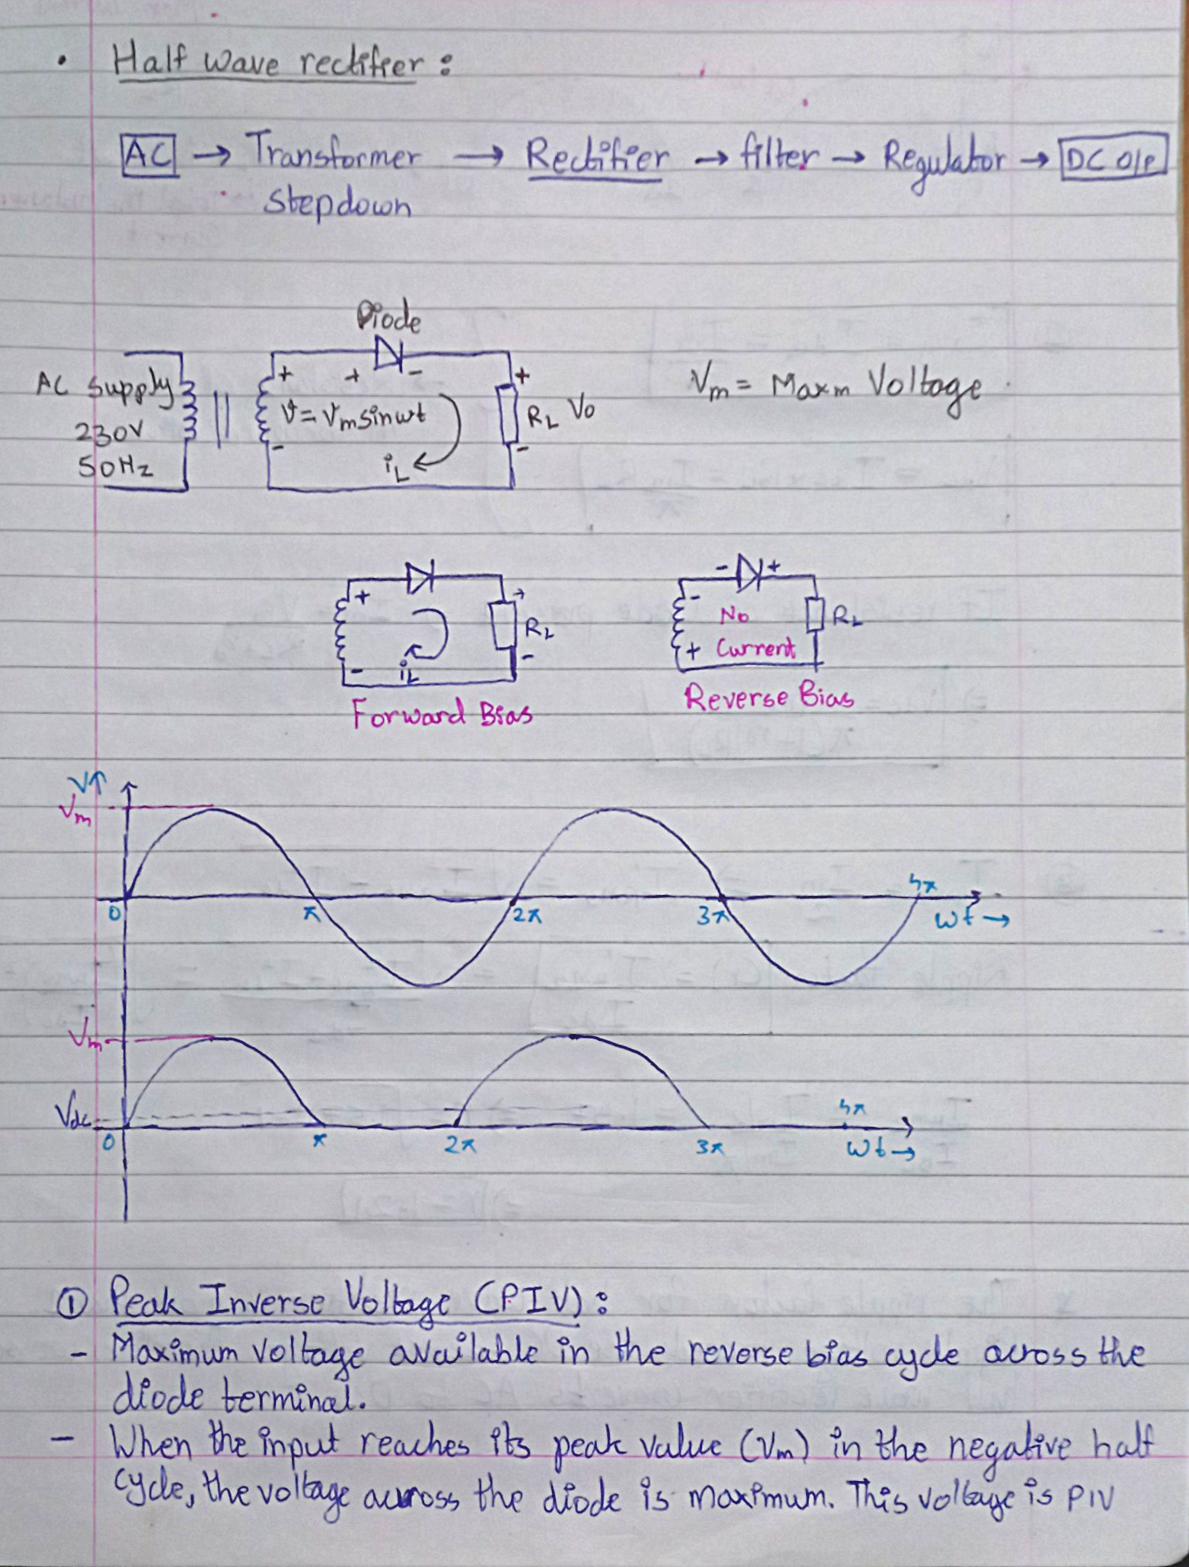 • Half wave rectifier :
AC → Transformer → Rectifier → filter → Regulator → DC O/P
stepdown
Diode
+ + - +
AC Supply
230V
50Hz
v = Vm sinwt
-
iL
RL Vo
-
Vm = Maxm Voltage
+ +
RL
- iL -
Forward Bias
- +
- No RL
+ Current
Reverse Bias
V↑
Vm
0 π 2π 3π 4π
wt →
Vm
Vdc
0 π 2π 3π 4π
wt →
① Peak Inverse Voltage (PIV) :
- Maximum voltage available in the reverse bias cycle across the
diode terminal.
- When the input reaches its peak value (Vm) in the negative half
cycle, the voltage across the diode is maximum. This voltage is PIV